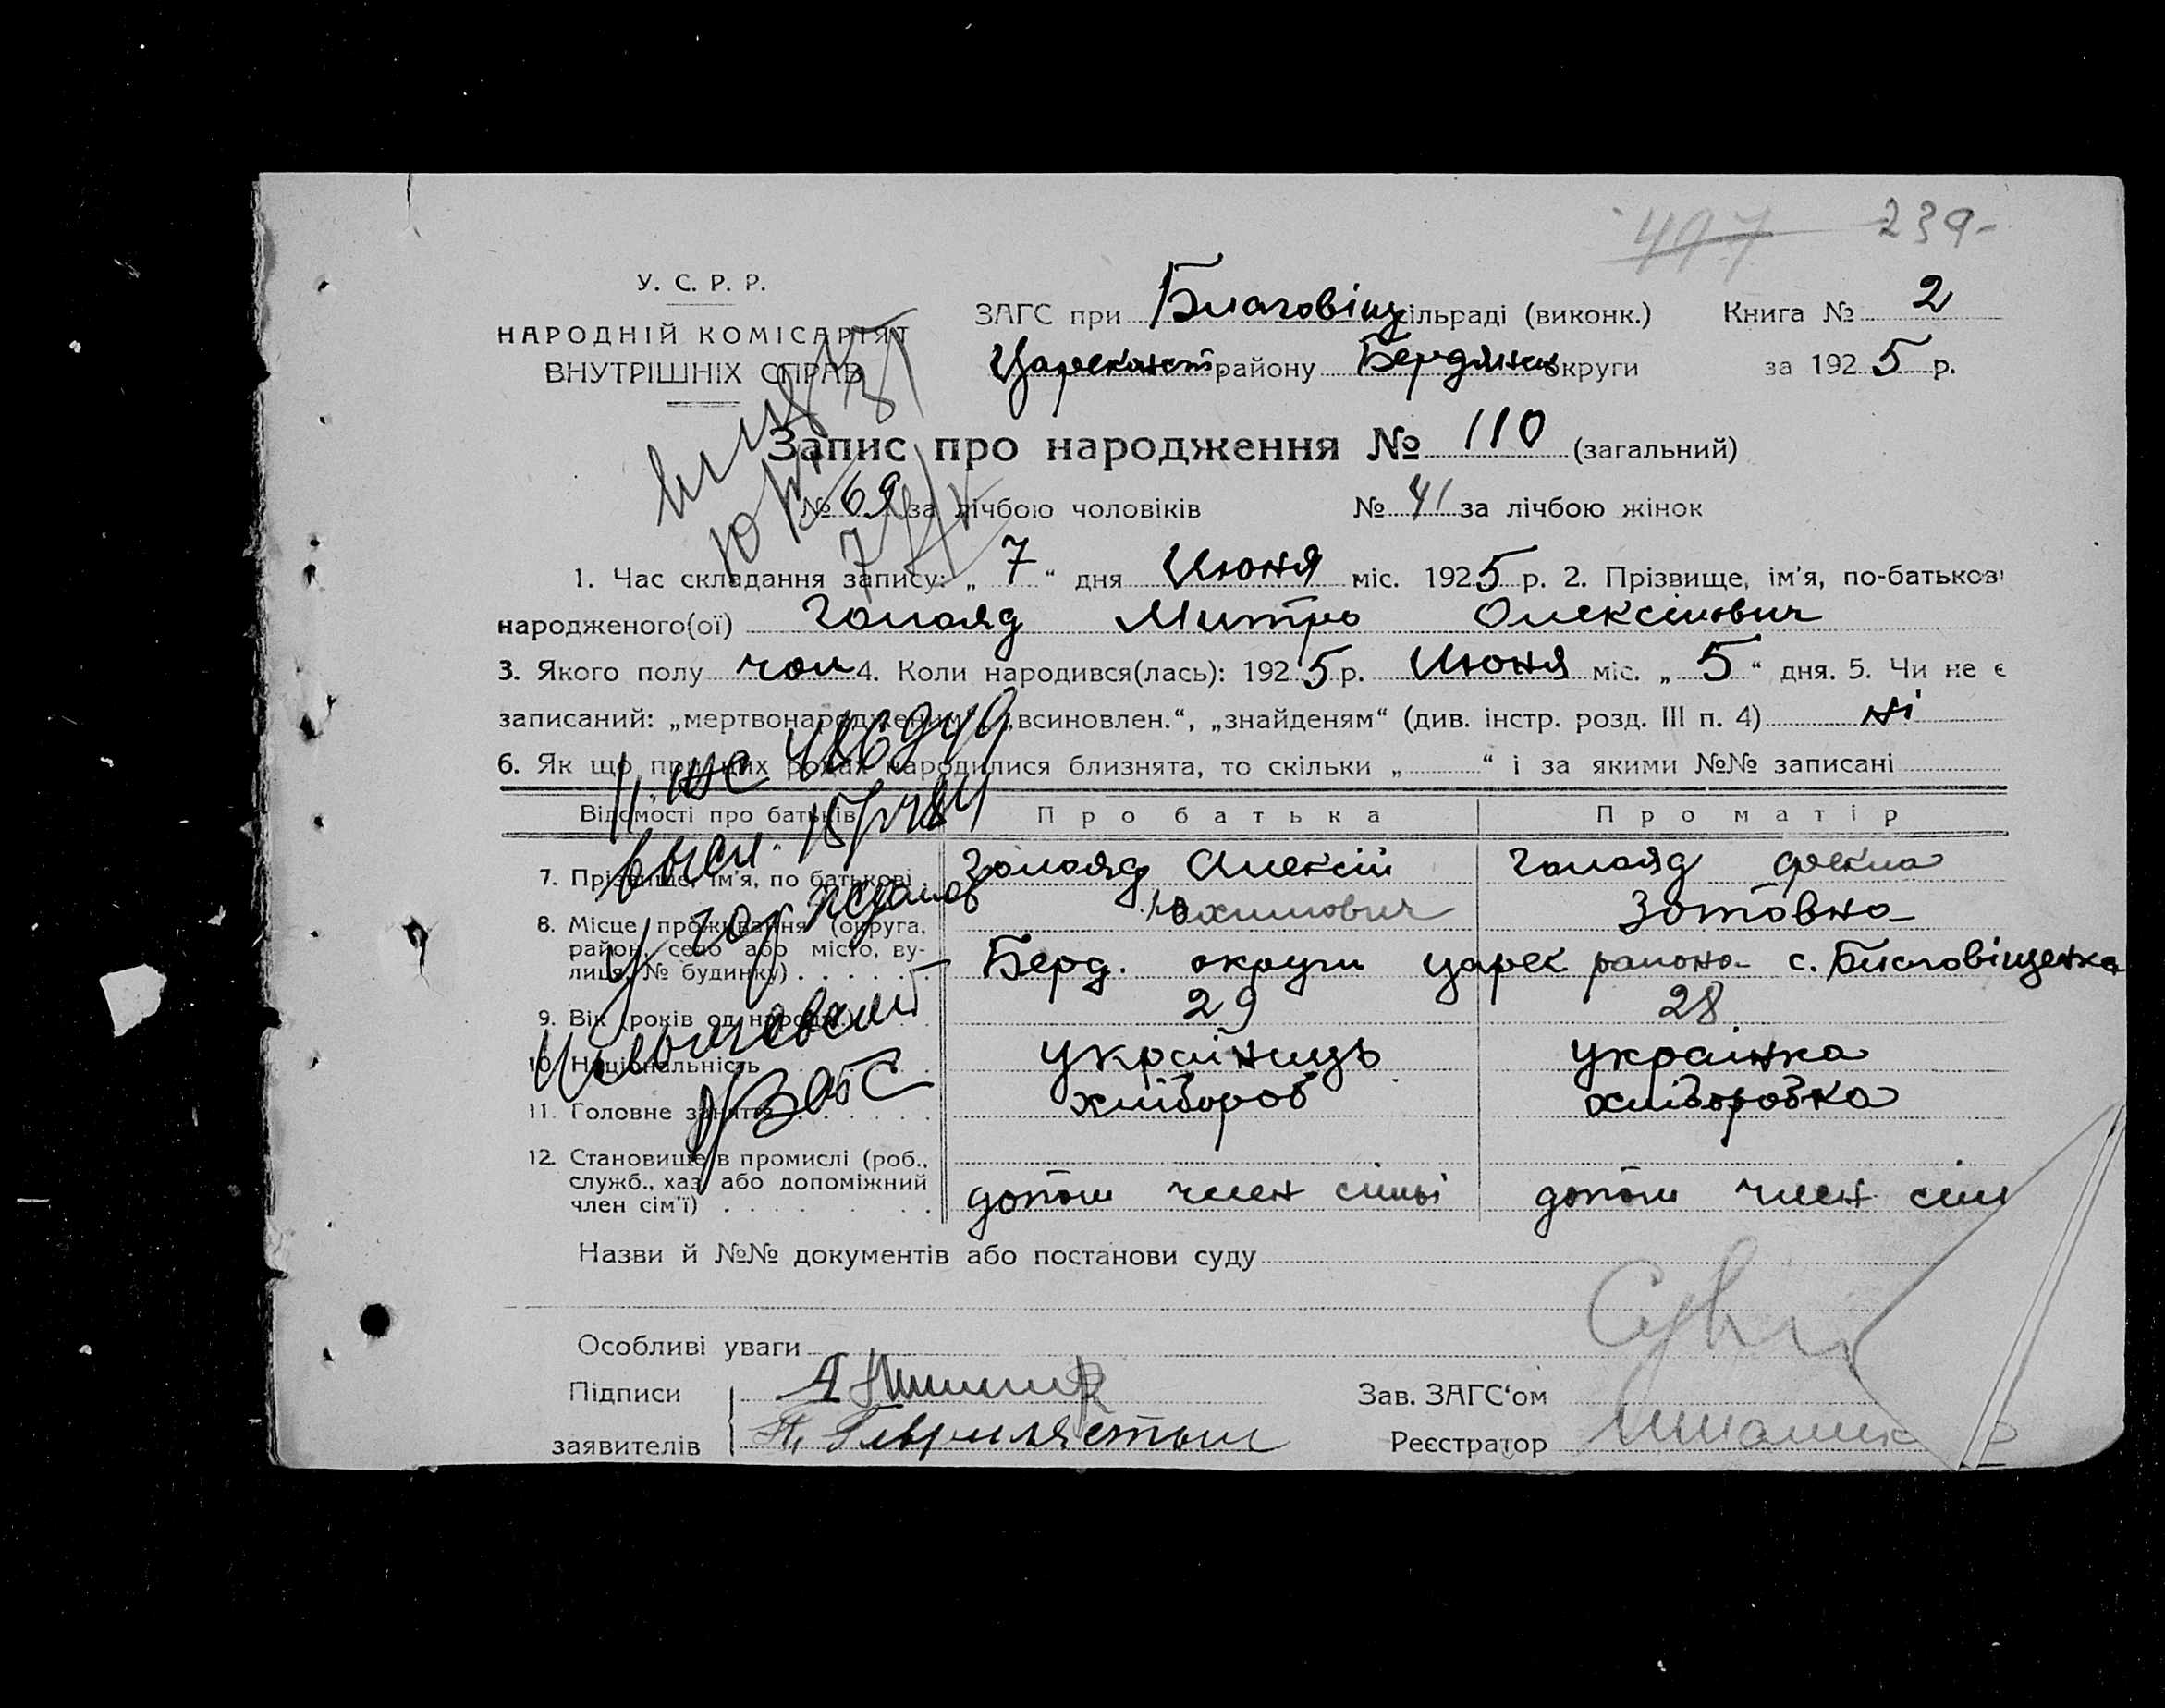 497 239-
У. С. Р. Р.
НАРОДНІЙ КОМІСАРІЯТ
ВНУТРІШНІХ СПРАВ
ЗАГС при Благовіщ сільраді (виконк.) Книга № 2
Царекинст району Бердянск округи за 1925 р.
Запис про народження № 110 (загальний)
№ 69 за лічбою чоловіків № 41 за лічбою жінок
1. Час складання запису: „ 7 “ дня Июня міс. 1925 р. 2. Прізвище, ім'я, по-батькові
народженого(ої) Голояд Митро Олексійович
3. Якого полу чол 4. Коли народився(лась): 1925 р. Июня міс. „ 5 “ дня. 5. Чи не є
записаний: „мертвонародженим“, „всиновлен.“, „знайденям“ (див. інстр. розд. III п. 4) ні
6. Як що при цих родах народилися близнята, то скільки „ “ і за якими №№ записані
Відомості про батьків Про батька Про матір
7. Прізвище, ім'я, по батькові Голояд Алексій Голояд Фекла
Юхимович Зотовна
8. Місце проживання (округа,
район, село або місто, ву-
лиця, № будинку) Берд. округи Царек района с. Благовіщенка
9. Вік (років од народж.) 29 28
10. Національність українець українка
11. Головне заняття хлібороб хлібороБка
12. Становище в промислі (роб.,
служб., хаз. або допоміжний
член сім'ї) допом член сімьі допом член сім
Назви й №№ документів або постанови суду
Особливі уваги
Підписи
заявителів
Зав. ЗАГС'ом
Реєстратор